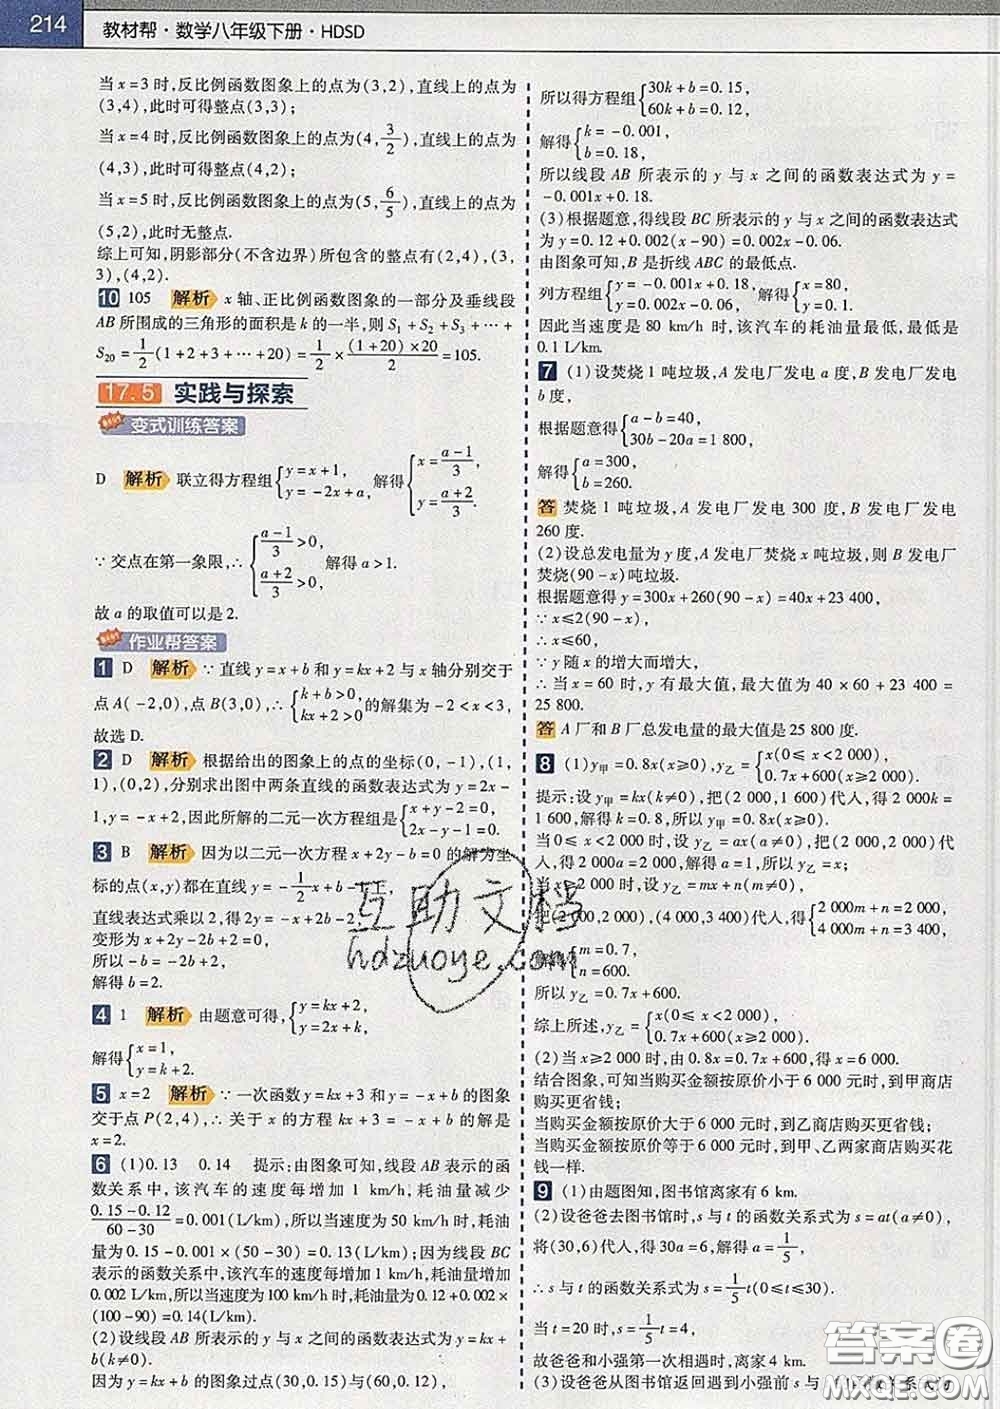 214
教材帮·数学八年级下册·HDSD
当x=3时,反比例函数图象上的点为(3,2),直线上的点为
(3,4),此时可得整点(3,3);
当x=4时,反比例函数图象上的点为(4,3/2),直线上的点为
(4,3),此时可得整点(4,2);
当x=5时,反比例函数图象上的点为(5,6/5),直线上的点为
(5,2),此时无整点.
综上可知,阴影部分(不含边界)所包含的整点有(2,4),(3,
3),(4,2).
10 105 解析 x轴、正比例函数图象的一部分及垂线段
AB所围成的三角形的面积是k的一半,则S₁+S₂+S₃+…+
S₂₀=1/2(1+2+3+…+20)=1/2×(1+20)×20/2=105.
17.5 实践与探索
变式训练答案
D 解析 联立得方程组{y=x+1, y=-2x+a, 解得{x=(a-1)/3, y=(a+2)/3.
∵交点在第一象限,∴{(a-1)/3>0, (a+2)/3>0, 解得a>1.
故a的取值可以是2.
作业帮答案
1 D 解析 ∵直线y=x+b和y=kx+2与x轴分别交于
点A(-2,0),点B(3,0),∴{k+b>0, kx+2>0的解集为-2<x<3,
故选D.
2 D 解析 根据给出的图象上的点的坐标(0,-1),(1,
1),(0,2),分别求出图中两条直线的函数表达式为y=2x-
1,y=-x+2,因此所解的二元一次方程组是{x+y-2=0, 2x-y-1=0.
3 B 解析 因为以二元一次方程x+2y-b=0的解为坐
标的点(x,y)都在直线y=-1/2x+b-1上,
直线表达式乘以2,得2y=-x+2b-2,
变形为x+2y-2b+2=0,
所以-b=-2b+2,
解得b=2.
4 1 解析 由题意可得,{y=kx+2, y=2x+k,
解得{x=1, y=k+2.
5 x=2 解析 ∵一次函数y=kx+3和y=-x+b的图象
交于点P(2,4),∴关于x的方程kx+3=-x+b的解是
x=2.
6 (1)0.13 0.14 提示:由图象可知,线段AB表示的函
数关系中,该汽车的速度每增加1 km/h,耗油量减少
(0.15-0.12)/(60-30)=0.001(L/km),所以当速度为50 km/h时,耗油
量为0.15-0.001×(50-30)=0.13(L/km);因为线段BC
表示的函数关系中,该汽车的速度每增加1 km/h,耗油量增加
0.002 L/km,所以当速度为100 km/h时,耗油量为0.12+0.002×
(100-90)=0.14(L/km).
(2)设线段AB所表示的y与x之间的函数表达式为y=kx+
b(k≠0).
因为y=kx+b的图象过点(30,0.15)与(60,0.12),
所以得方程组{30k+b=0.15, 60k+b=0.12,
解得{k=-0.001, b=0.18,
所以线段AB所表示的y与x之间的函数表达式为y=
-0.001x+0.18.
(3)根据题意,得线段BC所表示的y与x之间的函数表达式
为y=0.12+0.002(x-90)=0.002x-0.06.
由图象可知,B是折线ABC的最低点.
列方程组{y=-0.001x+0.18, y=0.002x-0.06, 解得{x=80, y=0.1.
因此当速度是80 km/h时,该汽车的耗油量最低,最低是
0.1 L/km.
7 (1)设焚烧1吨垃圾,A发电厂发电a度,B发电厂发电
b度,
根据题意得{a-b=40, 30b-20a=1 800,
解得{a=300, b=260.
答 焚烧1吨垃圾,A发电厂发电300度,B发电厂发电
260度.
(2)设总发电量为y度,A发电厂焚烧x吨垃圾,则B发电厂
焚烧(90-x)吨垃圾.
根据题意得y=300x+260(90-x)=40x+23 400,
∵x≤2(90-x),
∴x≤60.
∵y随x的增大而增大,
∴当x=60时,y有最大值,最大值为40×60+23 400=
25 800.
答 A厂和B厂总发电量的最大值是25 800度.
8 (1)y甲=0.8x(x≥0),y乙={x(0≤x<2 000), 0.7x+600(x≥2 000).
提示:设y甲=kx(k≠0),把(2 000,1 600)代入,得2 000k=
1 600,解得k=0.8,所以y甲=0.8x(x≥0).
当0≤x<2 000时,设y乙=ax(a≠0),把(2 000,2 000)代
入,得2 000a=2 000,解得a=1,所以y乙=x;
当x≥2 000时,设y乙=mx+n(m≠0),
把(2 000,2 000),(4 000,3 400)代入,得{2 000m+n=2 000, 4 000m+n=3 400,
解得{m=0.7, n=600.
所以y乙=0.7x+600.
综上所述,y乙={x(0≤x<2 000), 0.7x+600(x≥2 000).
(2)当x≥2 000时,由0.8x=0.7x+600,得x=6 000.
结合图象,可知当购买金额按原价小于6 000元时,到甲商店
购买更省钱;
当购买金额按原价大于6 000元时,到乙商店购买更省钱;
当购买金额按原价等于6 000元时,到甲、乙两家商店购买花
钱一样.
9 (1)由题图知,图书馆离家有6 km.
(2)设爸爸去图书馆时,s与t的函数关系式为s=at(a≠0),
将(30,6)代入,得30a=6,解得a=1/5,
∴s与t的函数关系式为s=1/5t(0≤t≤30).
当t=20时,s=1/5t=4,
故爸爸和小强第一次相遇时,离家4 km.
(3)设爸爸从图书馆返回遇到小强前s与
互助文档
hdzuoye.com
答案圈
MXQE.COM